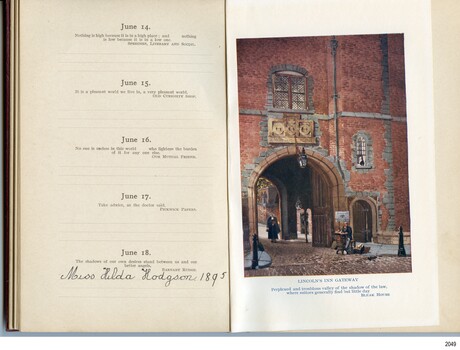 June 14.
Nothing is high because it is in a high place; and nothing
is low because it is in a low one.
June 15.
It is a pleasant world we live in, a very pleasant world.
June 16.
No one is useless in this world who lightens the burden
of it for any one else.
OUR MUTUAL FRIEND.
June 17.
Take advice, as the doctor said.
PICKWICK PAPERS.
June 18.
The shadows of our own desires stand between us and our
better angels.
BARNABY RUDGE.
Miss Hilda Hodgson 1895
LINCOLN'S INN GATEWAY
Perplexed and troublous valley of the shadow of the law,
where suitors generally find but little day
BLEAK HOUSE
2049